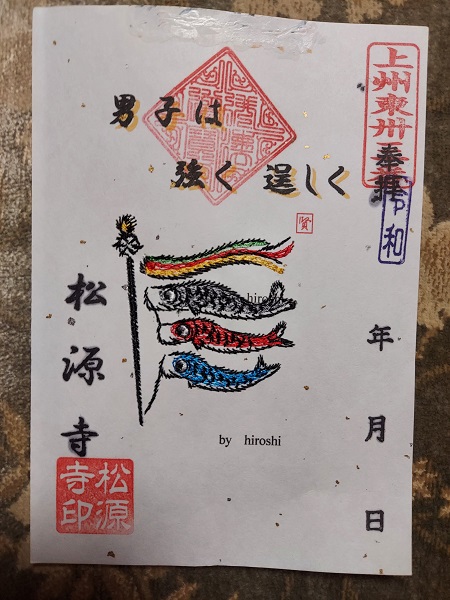 上州東州
奉拝
令和
年 月 日
男子は
強く 逞しく
賢
hiroshi
by hiroshi
松源寺
松源
寺印